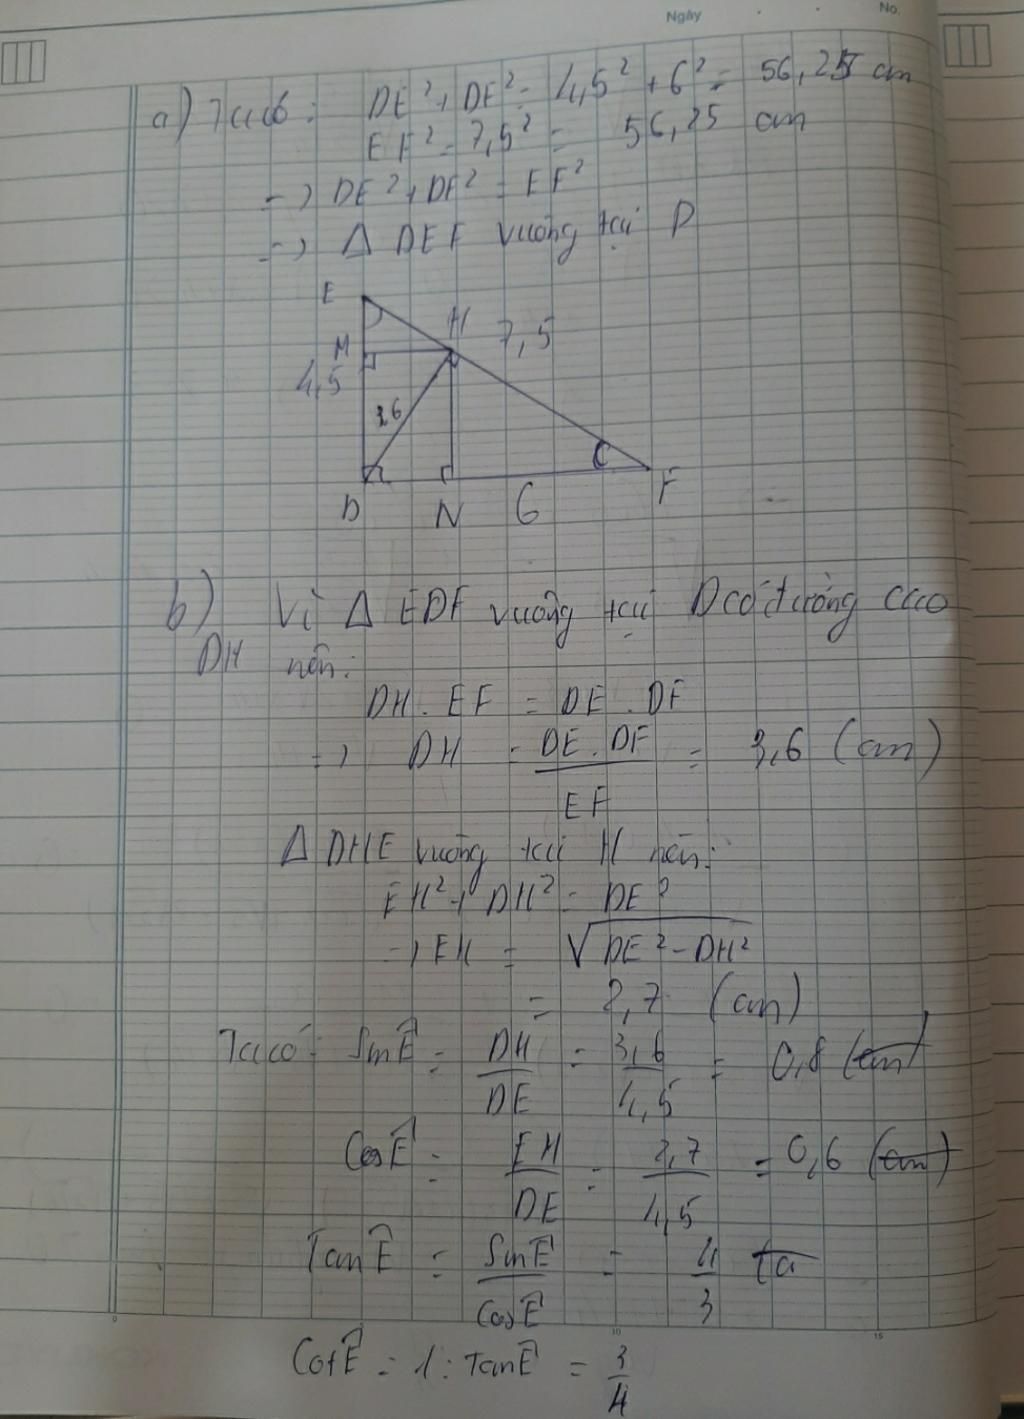 Ngày
No.
a) Ta có: DE² + DF² = 4,5² + 6² = 56,25 cm
EF² = 7,5² = 56,25 cm
=> DE² + DF² = EF²
=> Δ DEF vuông tại D
E
H
7,5
M
4,5
3,6
D
N
6
F
b) Vì Δ EDF vuông tại D có đường cao
DH nên:
DH . EF = DE . DF
=> DH = DE . DF / EF = 3,6 (cm)
Δ DHE vuông tại H nên:
EH² + DH² = DE²
=> EH = √DE² - DH²
= 2,7 (cm)
Ta có: Sin Ê = DH / DE = 3,6 / 4,5 = 0,8 (cm)
Cos Ê = EH / DE = 2,7 / 4,5 = 0,6 (cm)
Tan Ê = Sin Ê / Cos Ê = 4 / 3 Ta
0
10
15
Cot Ê = 1 : Tan Ê = 3 / 4